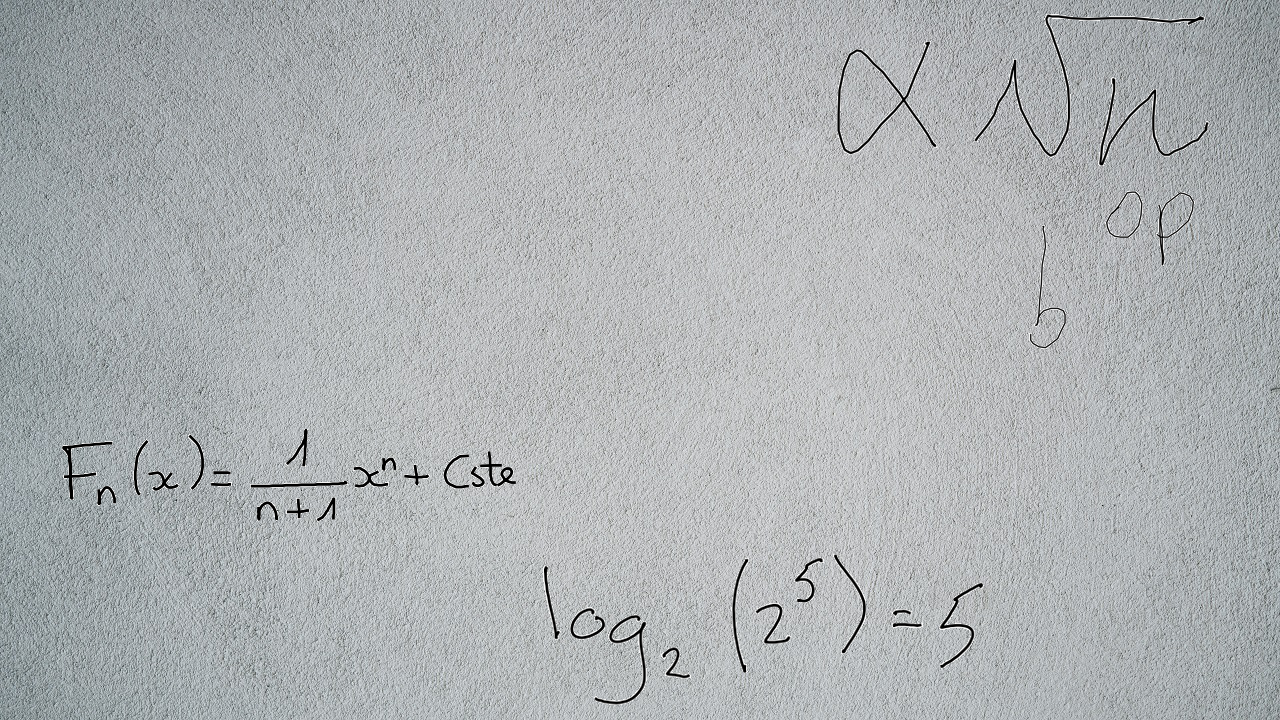 α √n
op
b
F_n(x) = \frac{1}{n+1} x^n + Cste
log_2 (2^5) = 5